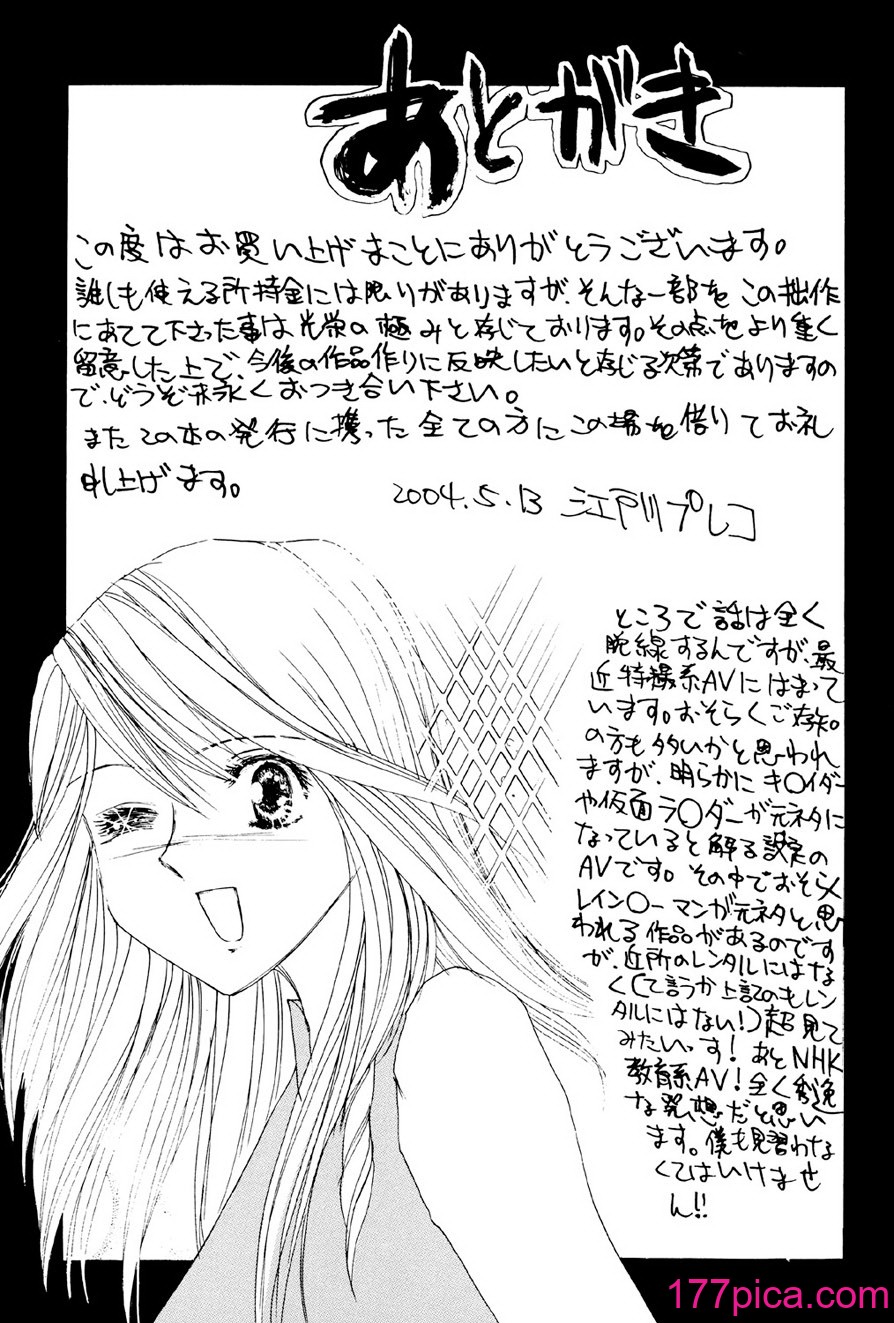 あとがき
この度はお買い上げまことにありがとうございます。
誰しも使える所持金には限りがありますが、そんな一部をこの拙作
にあてて下さった事は光栄の極みと存じております。その点をより重く
留意した上で、今後の作品作りに反映したいと存じる次第でありますの
で、どうぞ末永くおつき合い下さい。
またこの本の発行に携った全ての方にこの場を借りてお礼
申し上げます。
2004.5.13 江戸川プレコ
ところで話は全く
脱線するんですが、最
近特撮系AVにはまって
います。おそらくご存知
の方も多いかと思われ
ますが、明らかにキ〇イダー
や仮面ラ〇ダーが元ネタに
なっていると解る設定の
AVです。その中でおそらく
レイン〇ーマンが元ネタと思
われる作品があるのです
が、近所のレンタルにはな
く(て言うか上記のもレン
タルにはない!)超見て
みたいっす!あとNHK
教育系AV!全く秀逸
な発想だと思い
ます。僕も見習わな
くてはいけませ
ん!!
177pica.com